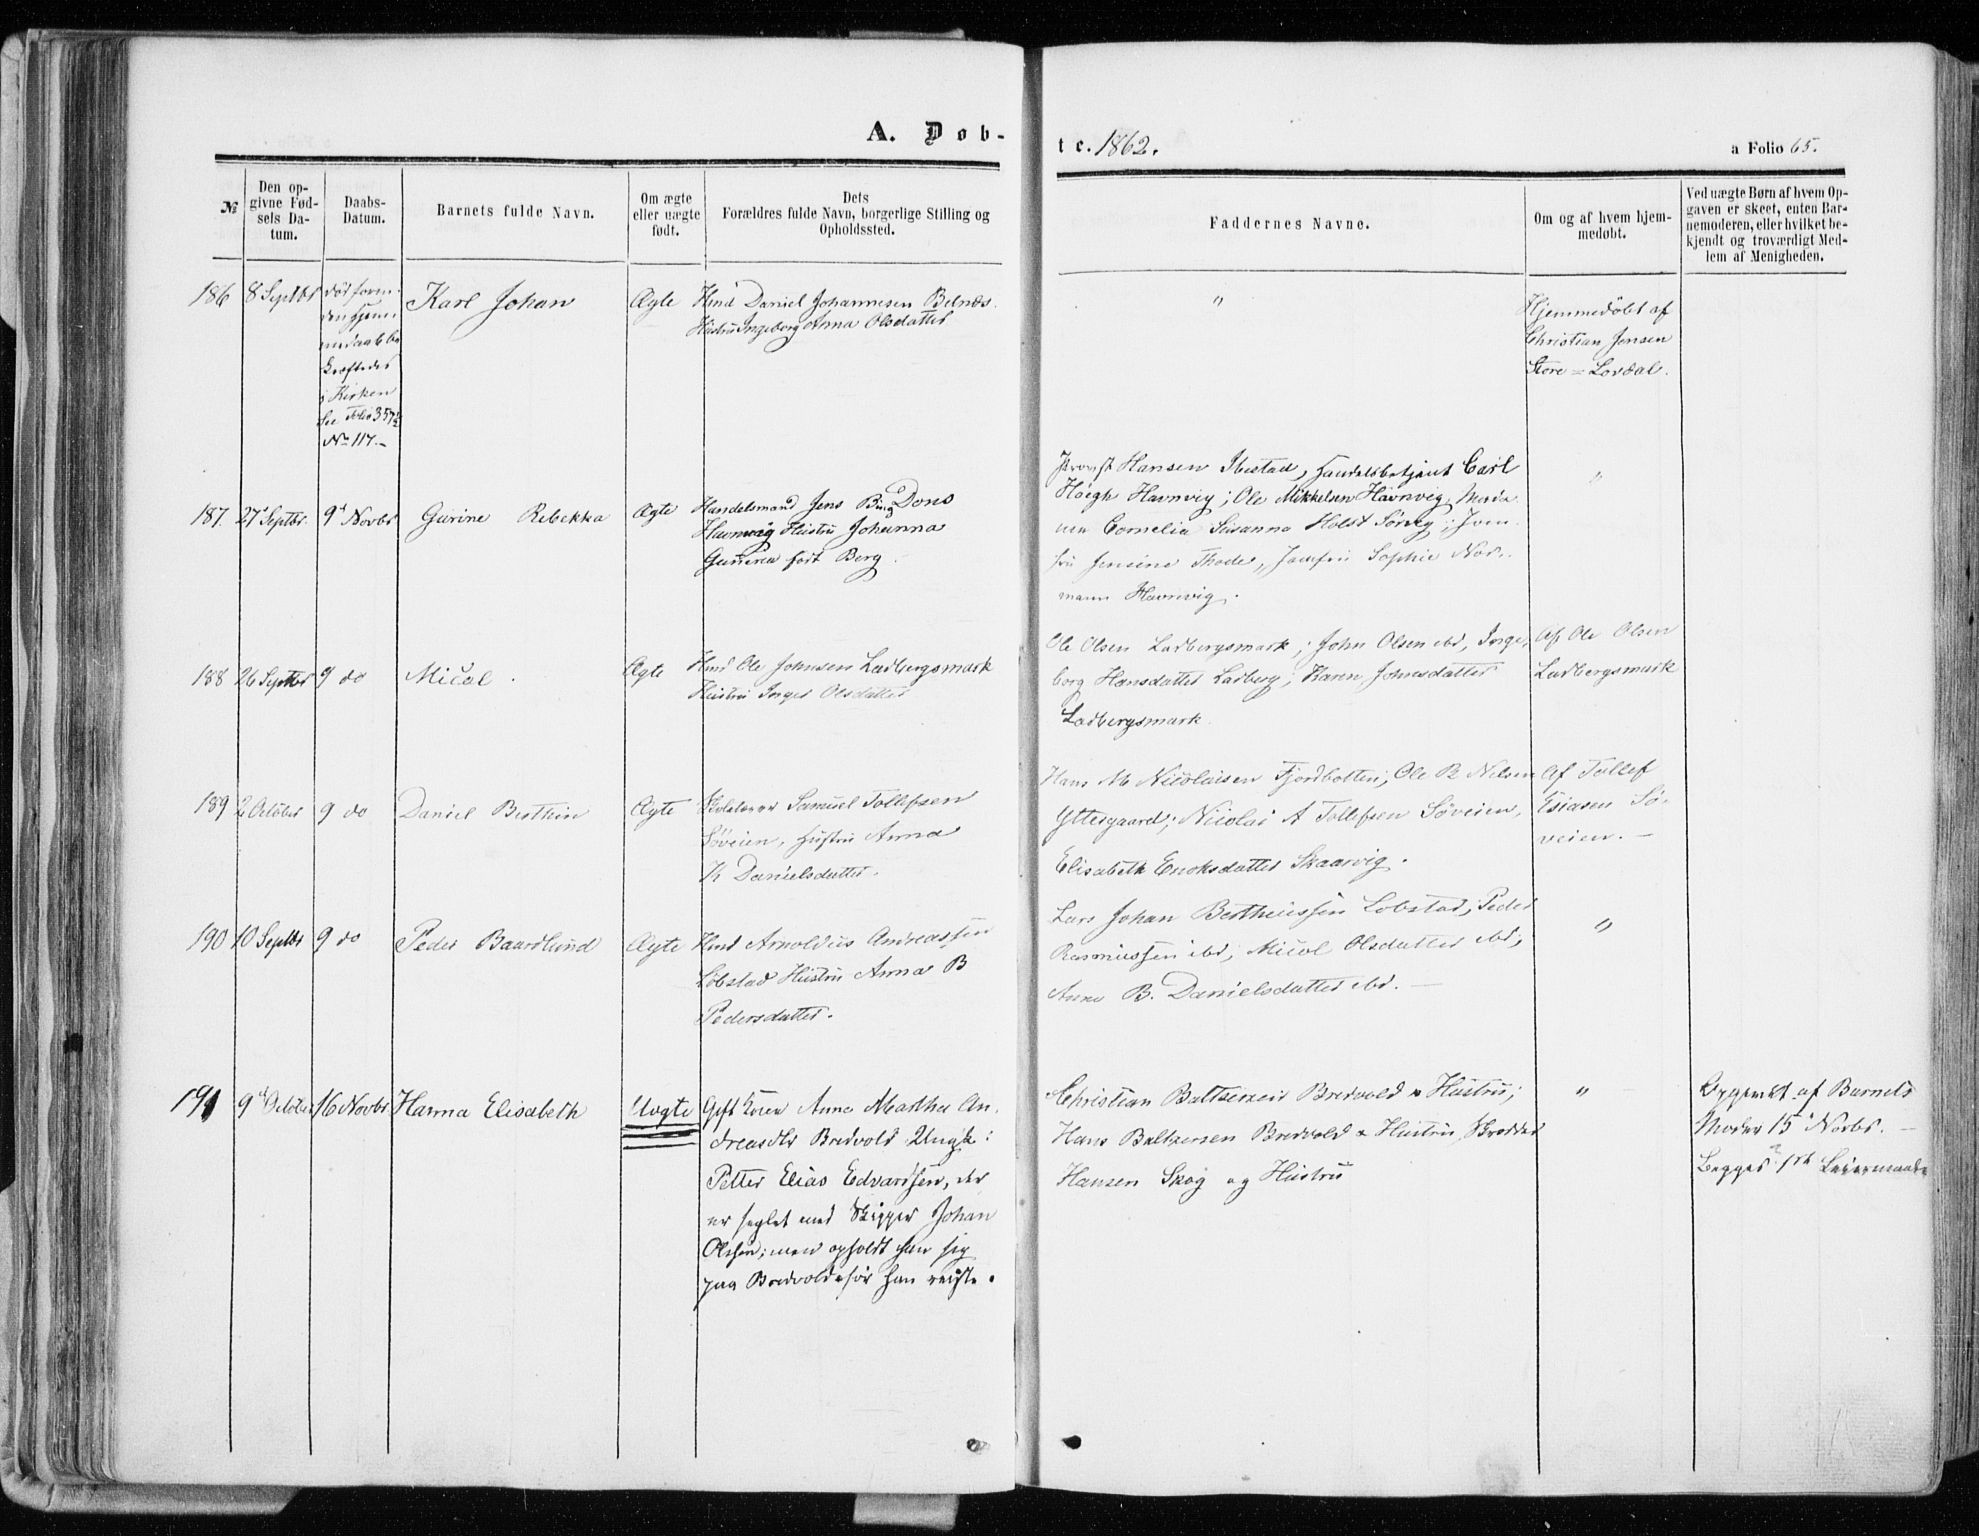 A. Døb-
te. 1862.
a Folio 65.
№
Den op-
givne Fød-
sels Da-
tum.
Daabs-
Datum.
Barnets fulde Navn.
Om ægte
eller uægte
født.
Dets
Forældres fulde Navn, borgerlige Stilling og
Opholdssted.
Faddernes Navne.
Om og af hvem hjem-
medøbt.
Ved uægte Børn af hvem Op-
gaven er skeet, enten Bar-
nemoderen, eller hvilket be-
kjendt og troværdigt Med-
lem af Menigheden.
186
8 Septbr
død forin-
den Hjem-
medaab be
kræftedes
i Kirken
See Folio 357½
No 117.-
Karl Johan
Ægte
Hmd Daniel Johannesen
Hustru Ingeborg Anna Olsdatter
"
Hjemmedøbt af
Christian Jensen
Store = Lovdal.
187.
27 Septbr.
9d Novbr
Gurine Rebekka
Ægte
Handelsmand Jens Bing Dons
Havnvig Hustru Johanna
født Berg.
Provst Hansen Ibestad, Handelsbetjent Carl
Høegh Havnvig; Ole Mikkelsen Havnvig, Mada
me Cornelia Susanna Holst Sørvig; Jom-
fru Jensine Thode, Jomfru Sophie Nor-
mann Havnvig.
"
188
26 Septbr
9 do
Micol.
Ægte
Hmd Ole Johnsen Ladbergsmark
Hustru Inger Olsdatter
Ole Olsen Ladbergsmark; John Olsen ibd, Inge-
borg Hansdatter Ladberg; Karen Johnsdatter
Ladbergsmark.
Af Ole Olsen
Ladbergsmark
189
2 October
9 do
Daniel Berthin
Ægte
Skolelærer Samuel Tollefsen
Søveien, Hustru Anna
K Danielsdatter.
Hans M Nicolaisen Fjordbotten; Ole R Nelsen
Yttergaard; Nicolai A Tollefsen Søveien,
Elisabeth Enoksdatter Skaarvig.
Af Tollef
Esiasen Sø-
veien. -
190
10 Septbr
9 do
Peder Baardlund
Ægte
Hmd Arnoldus Andreassen
Løbstad Hustru Anna B
Pedersdatter.
Lars Johan Bertheussen Lobstad; Peder
Rasmussen ibd, Micol Olsdatter ibd,
Anne B. Danielsdatter ibd. -
"
191
9d October
16 Novbr
Hanna Elisabeth
Uægte
Gift Kone Anne Martha An-
dreasdtr Bredvold Ungk:
Petter Elias Edvardsen, der
er seglet med Skipper Johan
Olsen; men opholdt han sig
paa Bredvold før han reiste.
Christian Baltsersen Bredvold & Hustru;
Hans Baltzersen Bredvold & Hustru, Skredder
Hansen Skog og Hustru
"
Opgivet af Barnets
Moder 15d Novbr. -
Begges 1ste Leiermaal.